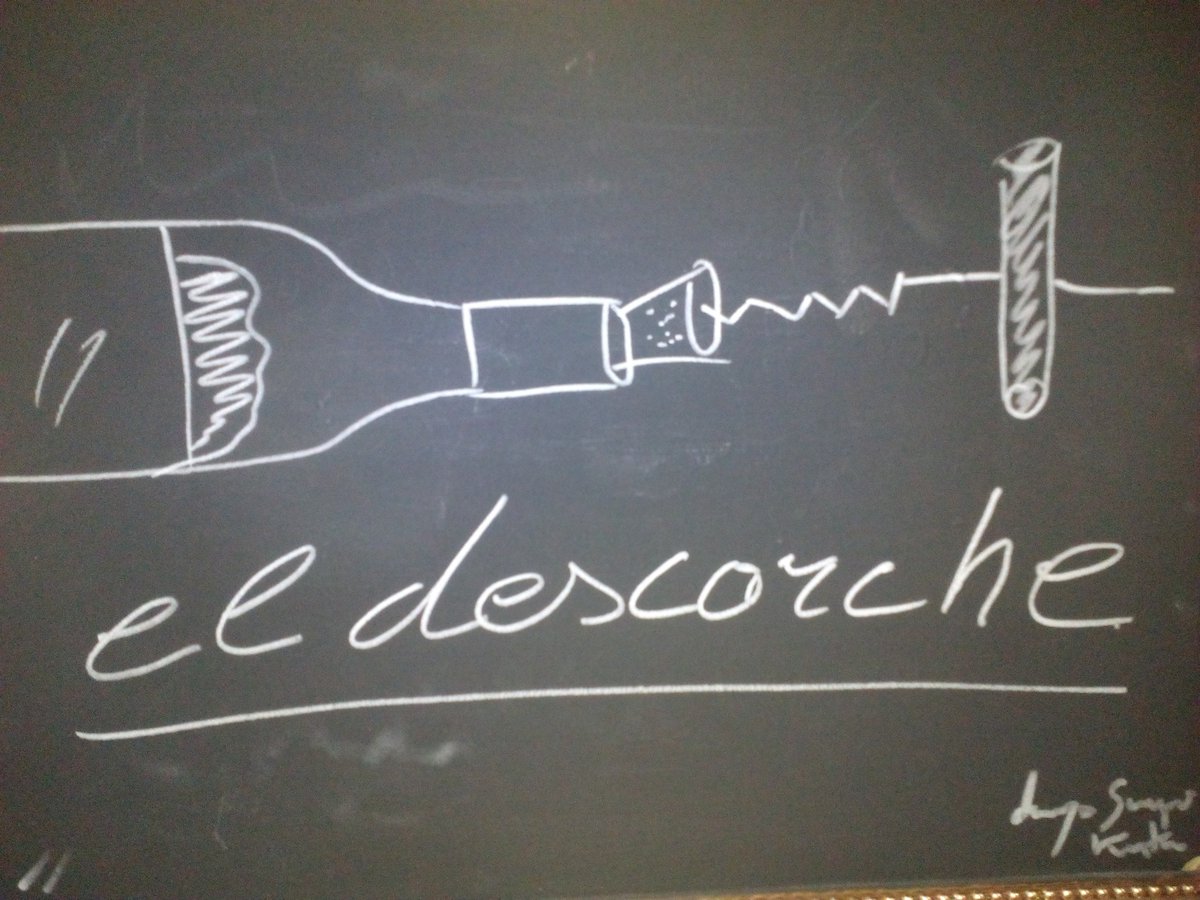 el descorche